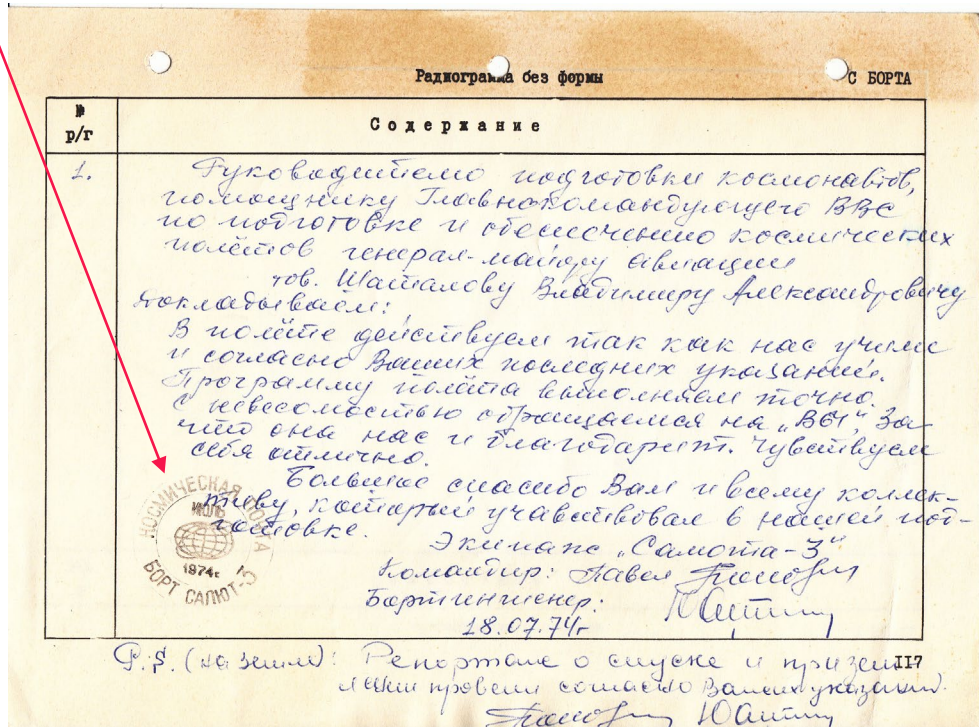 Радиограмма без формы
С БОРТА
№
р/г
Содержание
1.
Руководителю подготовки космонавтов,
помощнику Главнокомандующего ВВС
по подготовке и обеспечению космических
полётов генерал-майору авиации
тов. Шаталову Владимиру Александровичу
Докладываем:
В полёте действуем так как нас учили
и согласно Ваших последних указаний.
Программу полёта выполняем точно.
С невесомостью обращаемся на „ВЫ“, за
что она нас и благодарит. Чувствуем
себя отлично.
Большое спасибо Вам и всему коллек-
тиву, который учавствовал в нашей под-
готовке.
Экипаж „Салюта-3“
Командир: Павел Попович
Бортинженер: ЮАртюх
18.07.74г
КОСМИЧЕСКАЯ ПОЧТА
ИЮЛЬ
1974г.
БОРТ САЛЮТ-3
P.S. (на земле): Репортаж о спуске и призем-
лении провели согласно Ваших указаний.
117